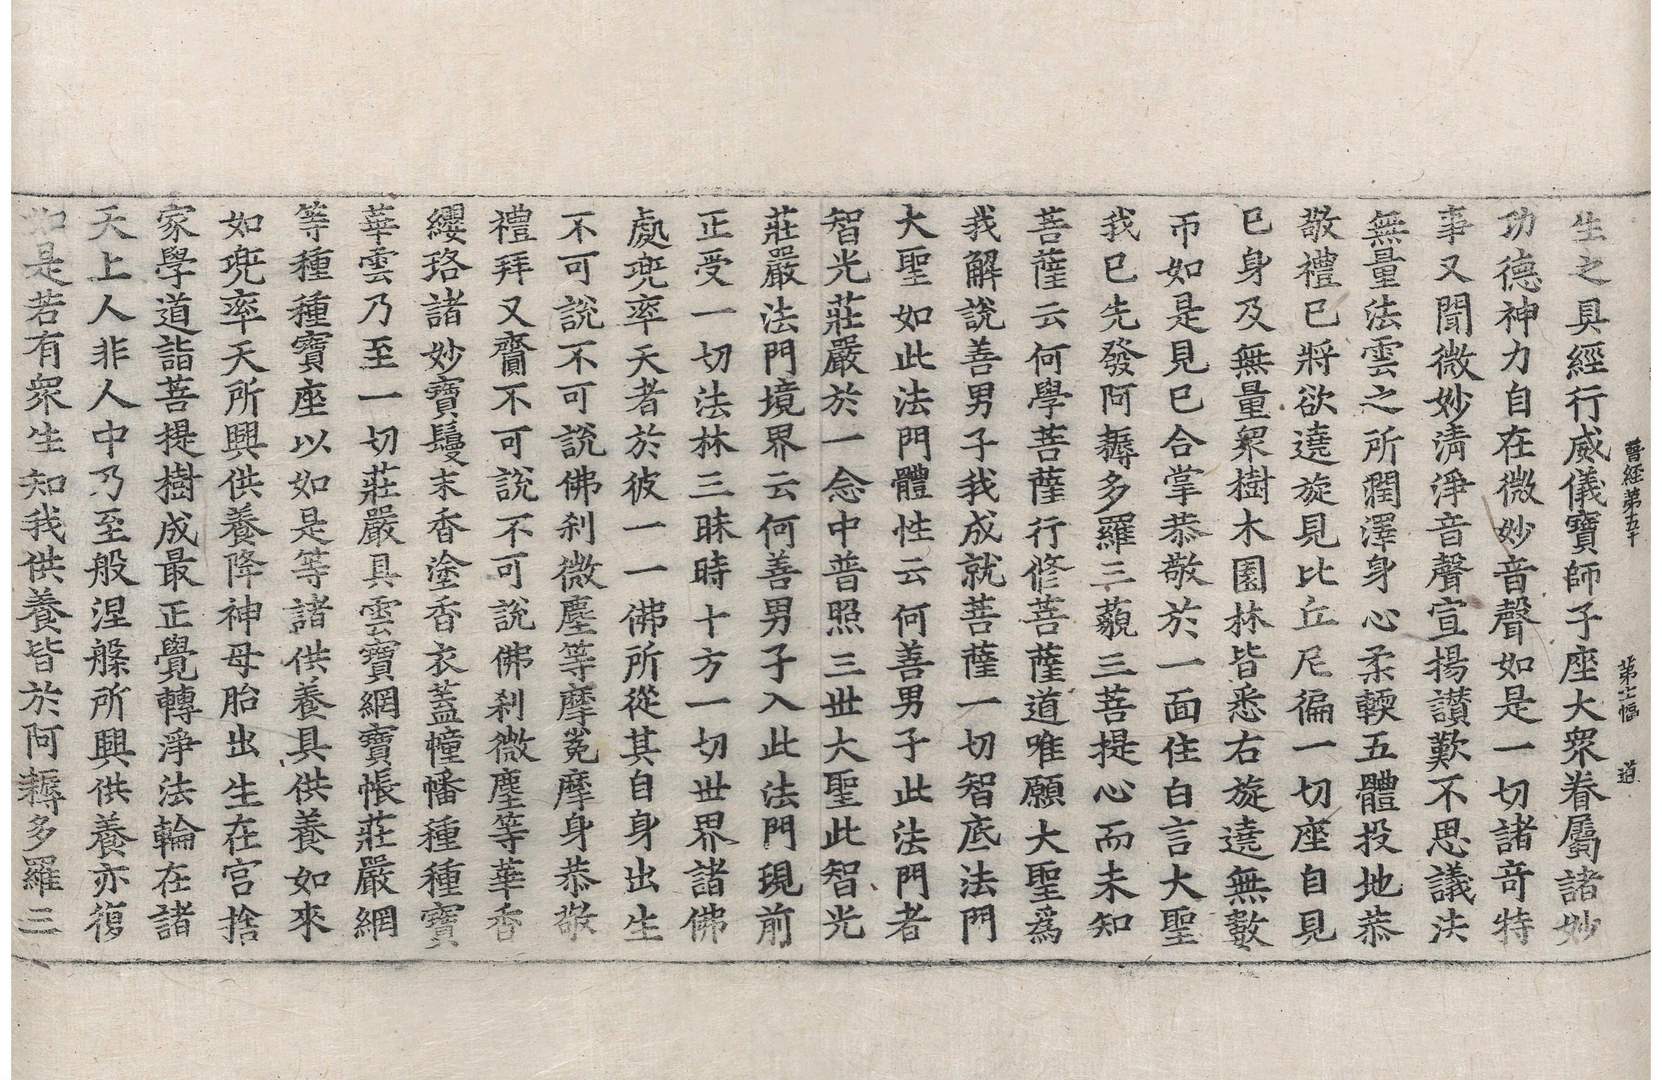 晉經第五十　第十七幅　道
生之具經行威儀寶師子座大衆眷屬諸妙
功德神力自在微妙音聲如是一切諸奇特
事又聞微妙清淨音聲宣揚讃歎不思議法
無量法雲之所潤澤身心柔輭五體投地恭
敬禮已將欲遶旋見比丘尼徧一切座自見
已身及無量衆樹木園林皆悉右旋遶無數
帀如是見已合掌恭敬於一面住白言大聖
我已先發阿耨多羅三藐三菩提心而未知
菩薩云何學菩薩行修菩薩道唯願大聖爲
我解說善男子我成就菩薩一切智底法門
大聖如此法門體性云何善男子此法門者
智光莊嚴於一念中普照三世大聖此智光
莊嚴法門境界云何善男子入此法門現前
正受一切法林三昧時十方一切世界諸佛
處兜率天者於彼一一佛所從其自身出生
不可說不可說佛刹微塵等摩㝹摩身恭敬
禮拜又齎不可說不可說佛刹微塵等華香
纓珞諸妙寶鬘末香塗香衣蓋幢幡種種寶
華雲乃至一切莊嚴具雲寶網寶帳莊嚴網
等種種寶座以如是等諸供養具供養如來
如兜率天所興供養降神母胎出生在宮捨
家學道詣菩提樹成最正覺轉淨法輪在諸
天上人非人中乃至般涅槃所興供養亦復
如是若有衆生知我供養皆於阿耨多羅三